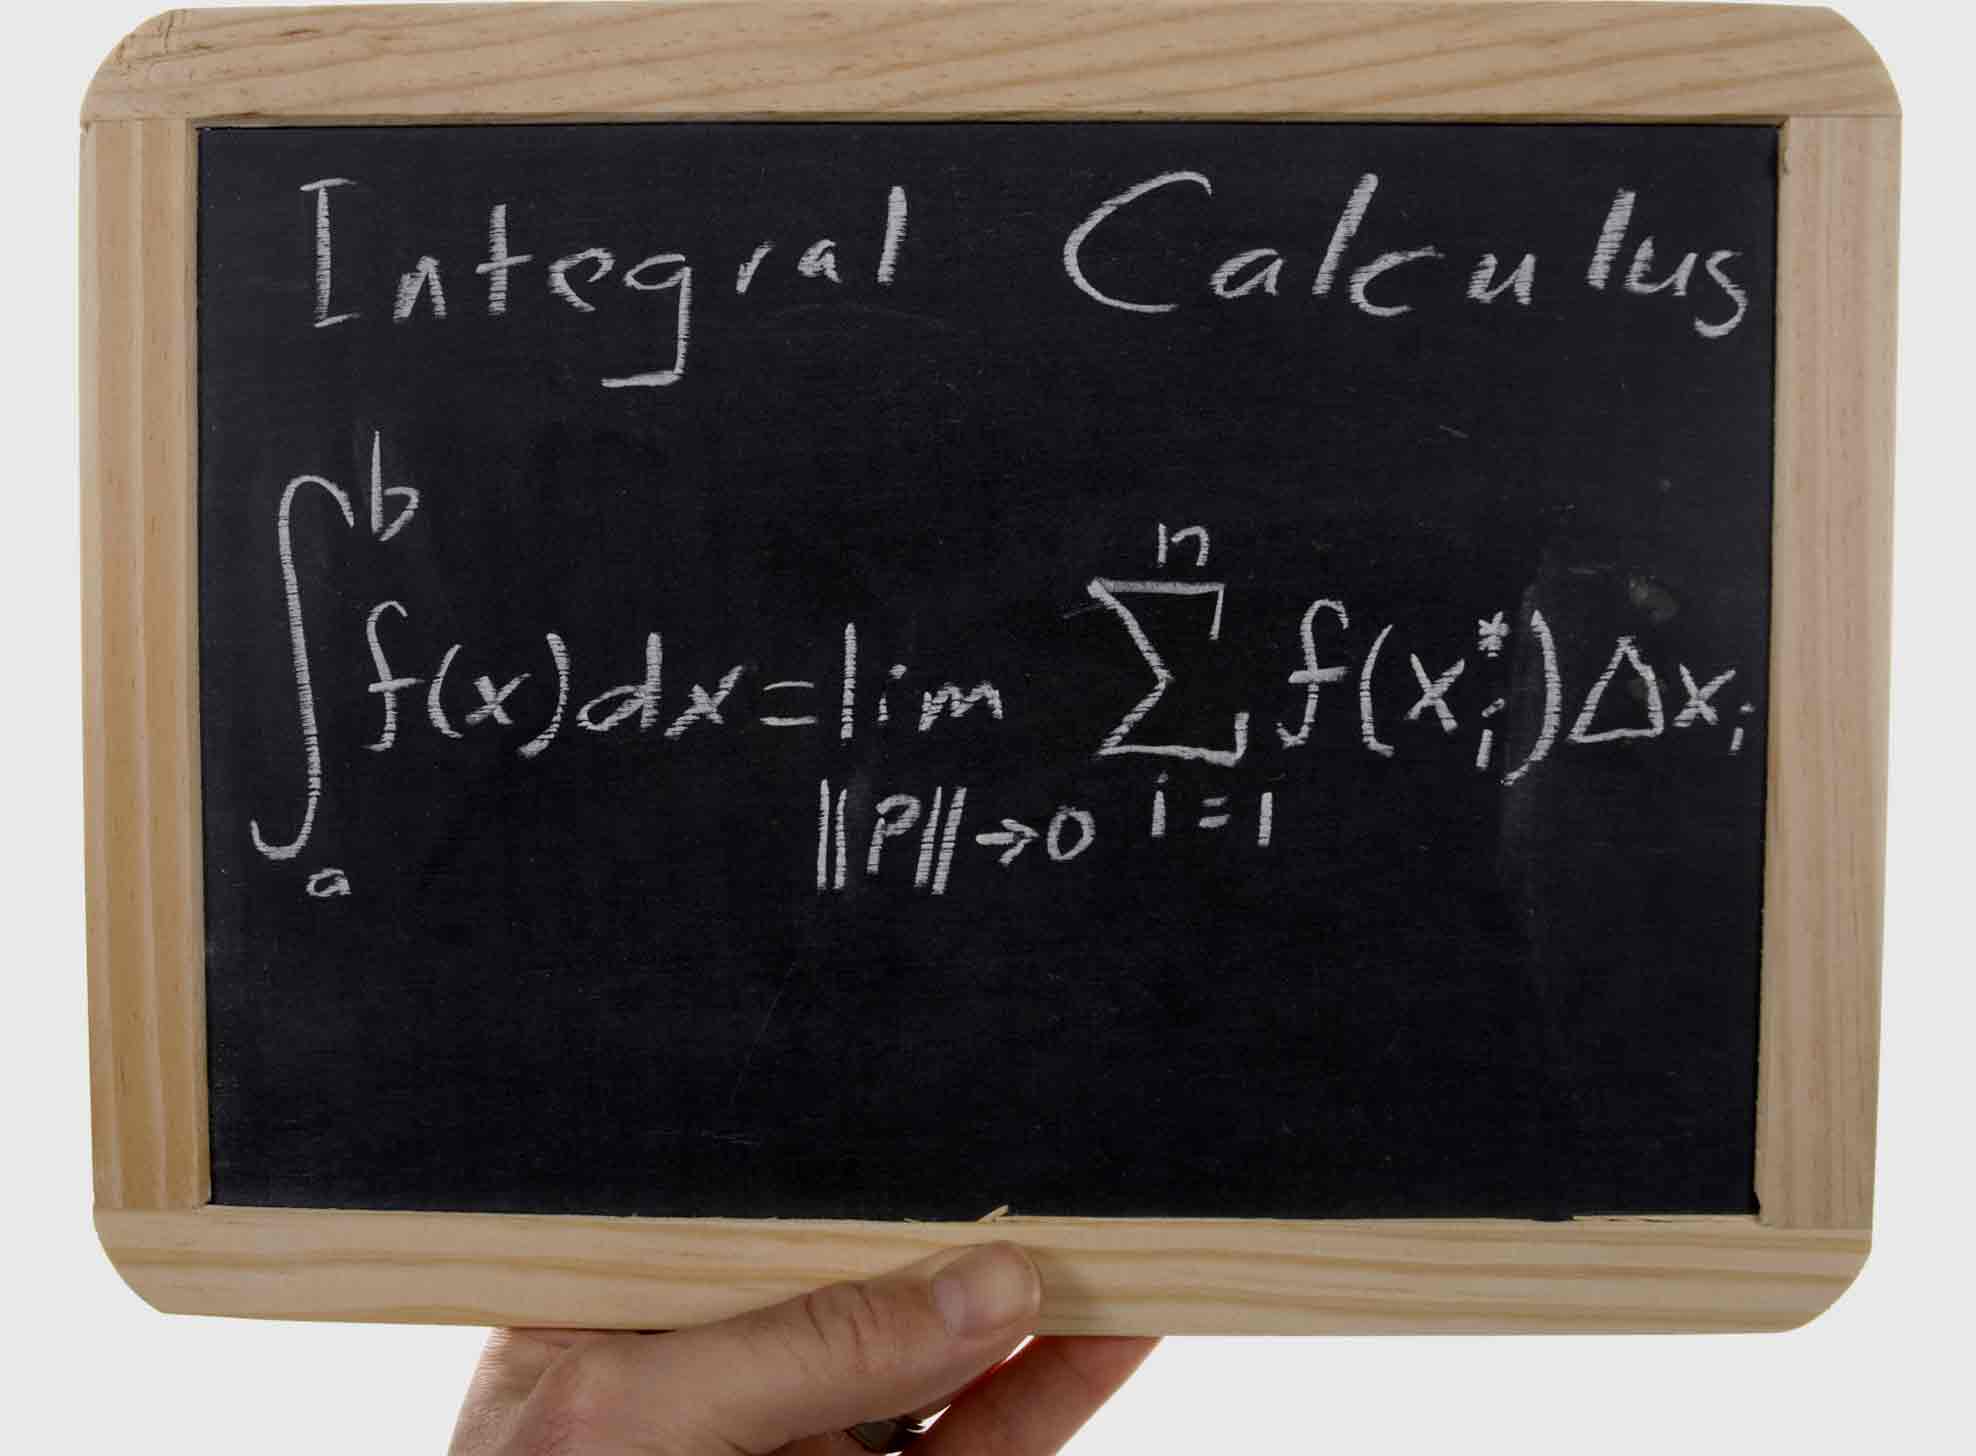 Integral Calculus
∫_a^b f(x)dx = lim_{||P||→0} ∑_{i=1}^n f(x_i^*)Δx_i